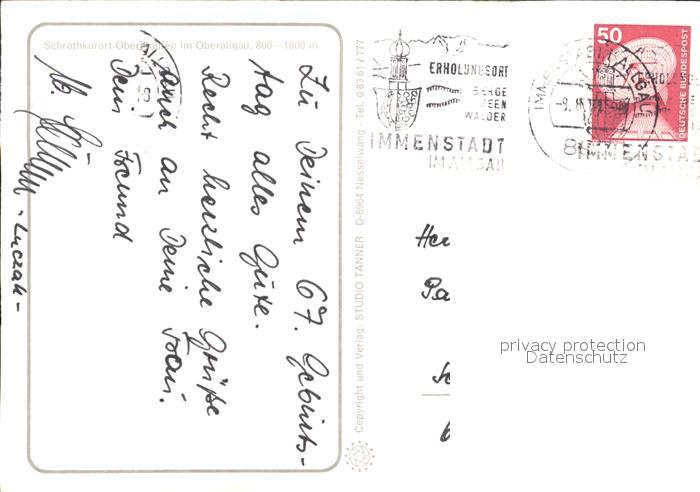 Schrothkurort Oberstaufen im Oberallgäu, 800—1800 m
Zu Deinem 67. Geburts-
tag alles Gute.
Recht herzliche Grüße
auch an Deine Frau.
Dein Freund
- Luczak -
Copyright und Verlag: STUDIO TANNER D-8964 Nesselwang - Tel. 0 83 61 / 777
ERHOLUNGSORT
BERGE
SEEN
WÄLDER
IMMENSTADT
IM ALLGÄU
50
DEUTSCHE BUNDESPOST
IMMENSTADT
Her
Pa
privacy protection
Datenschutz